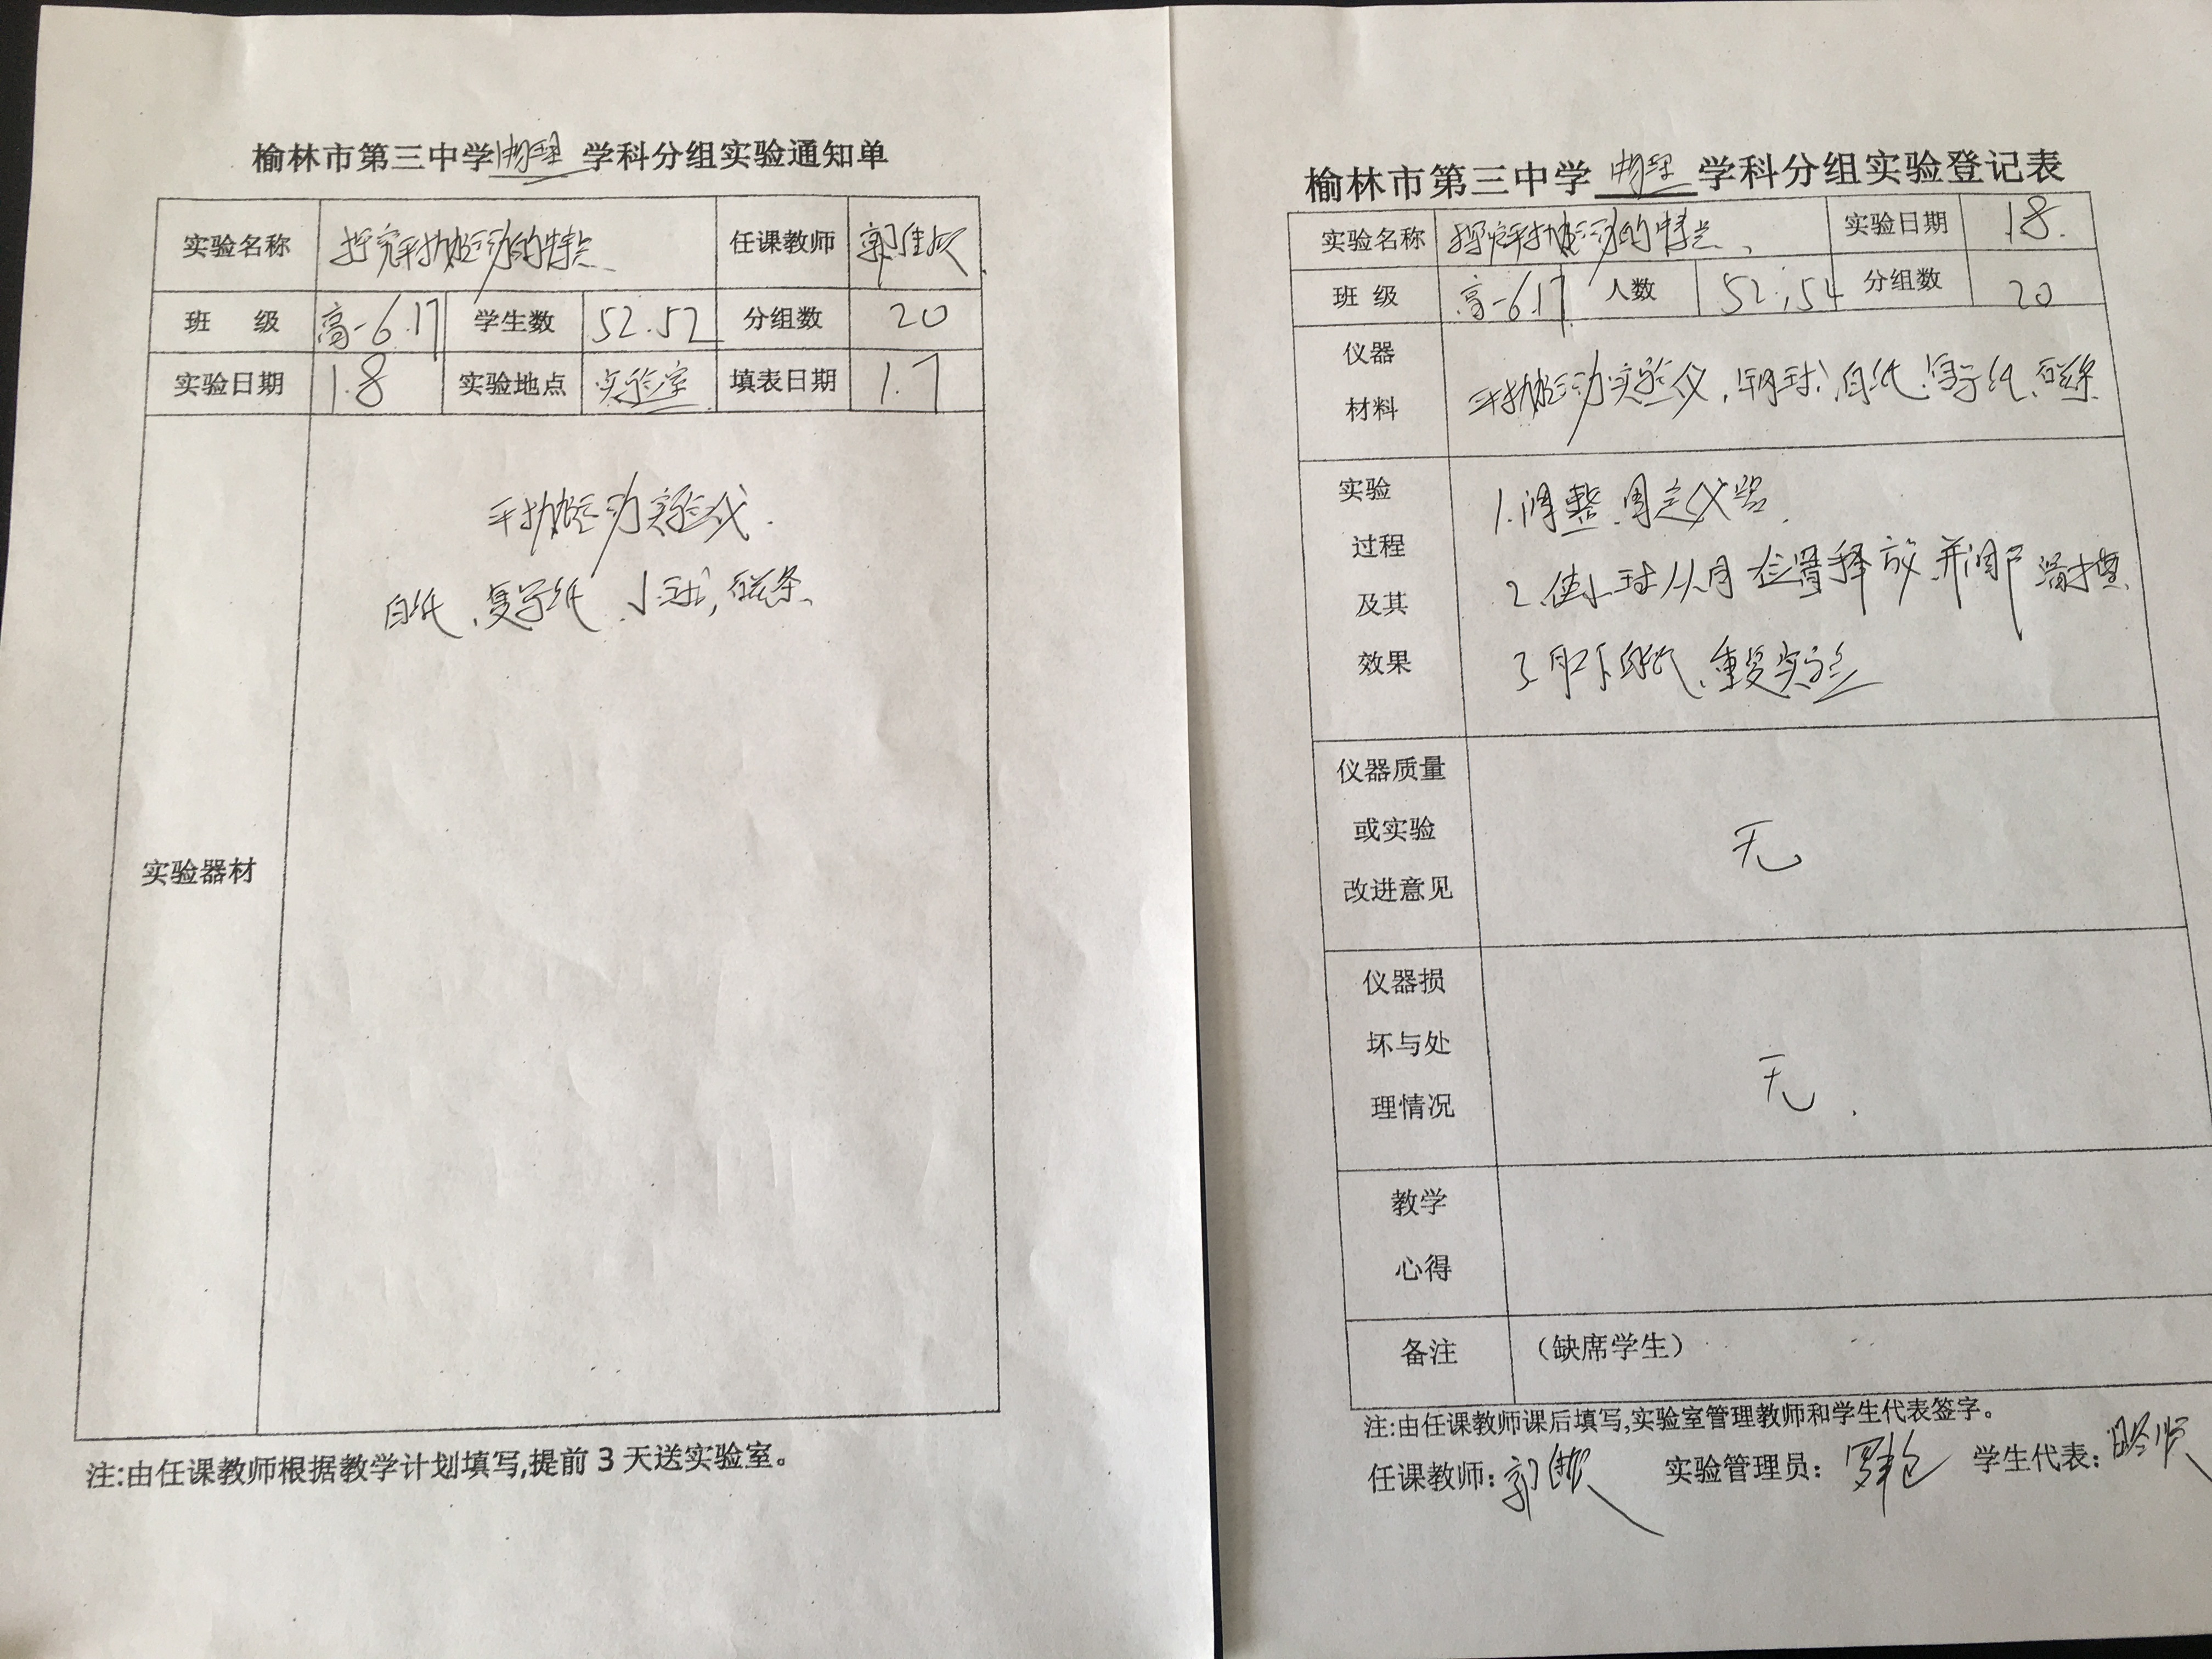 榆林市第三中学物理学科分组实验通知单
实验名称 探究平抛运动的特点 任课教师 郭佳欣
班 级 高一6.17 学生数 52.52 分组数 20
实验日期 1.8 实验地点 实验室 填表日期 1.7
实验器材
平抛运动实验仪.
白纸、复写纸、小球,磁条、
注:由任课教师根据教学计划填写,提前3天送实验室。
榆林市第三中学物理学科分组实验登记表
实验名称 探究平抛运动的特点、 实验日期 1.8.
班 级 高一6.17 人数 52;54 分组数 20
仪器
材料
平抛运动实验仪,钢球,白纸、复写纸、磁条
实验
过程
及其
效果
1.调整、固定仪器.
2.使小球从同一位置释放,并用
3.取下白纸、重复实验
仪器质量
或实验
改进意见
无
仪器损
坏与处
理情况
无.
教学
心得
备注 (缺席学生)
注:由任课教师课后填写,实验室管理教师和学生代表签字。
任课教师: 郭佳欣 实验管理员: 学生代表: